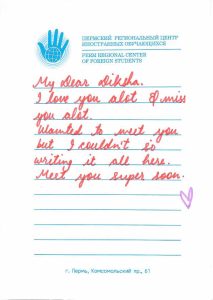 ПЕРМСКИЙ РЕГИОНАЛЬНЫЙ ЦЕНТР
ИНОСТРАННЫХ ОБУЧАЮЩИХСЯ
PERM REGIONAL CENTER
OF FOREIGN STUDENTS
My Dear Diksha.
I love you alot & miss
you alot.
Wanted to meet you
but I couldn't so
writing it all here.
Meet you super soon.
г. Пермь, Комсомольский пр., 61